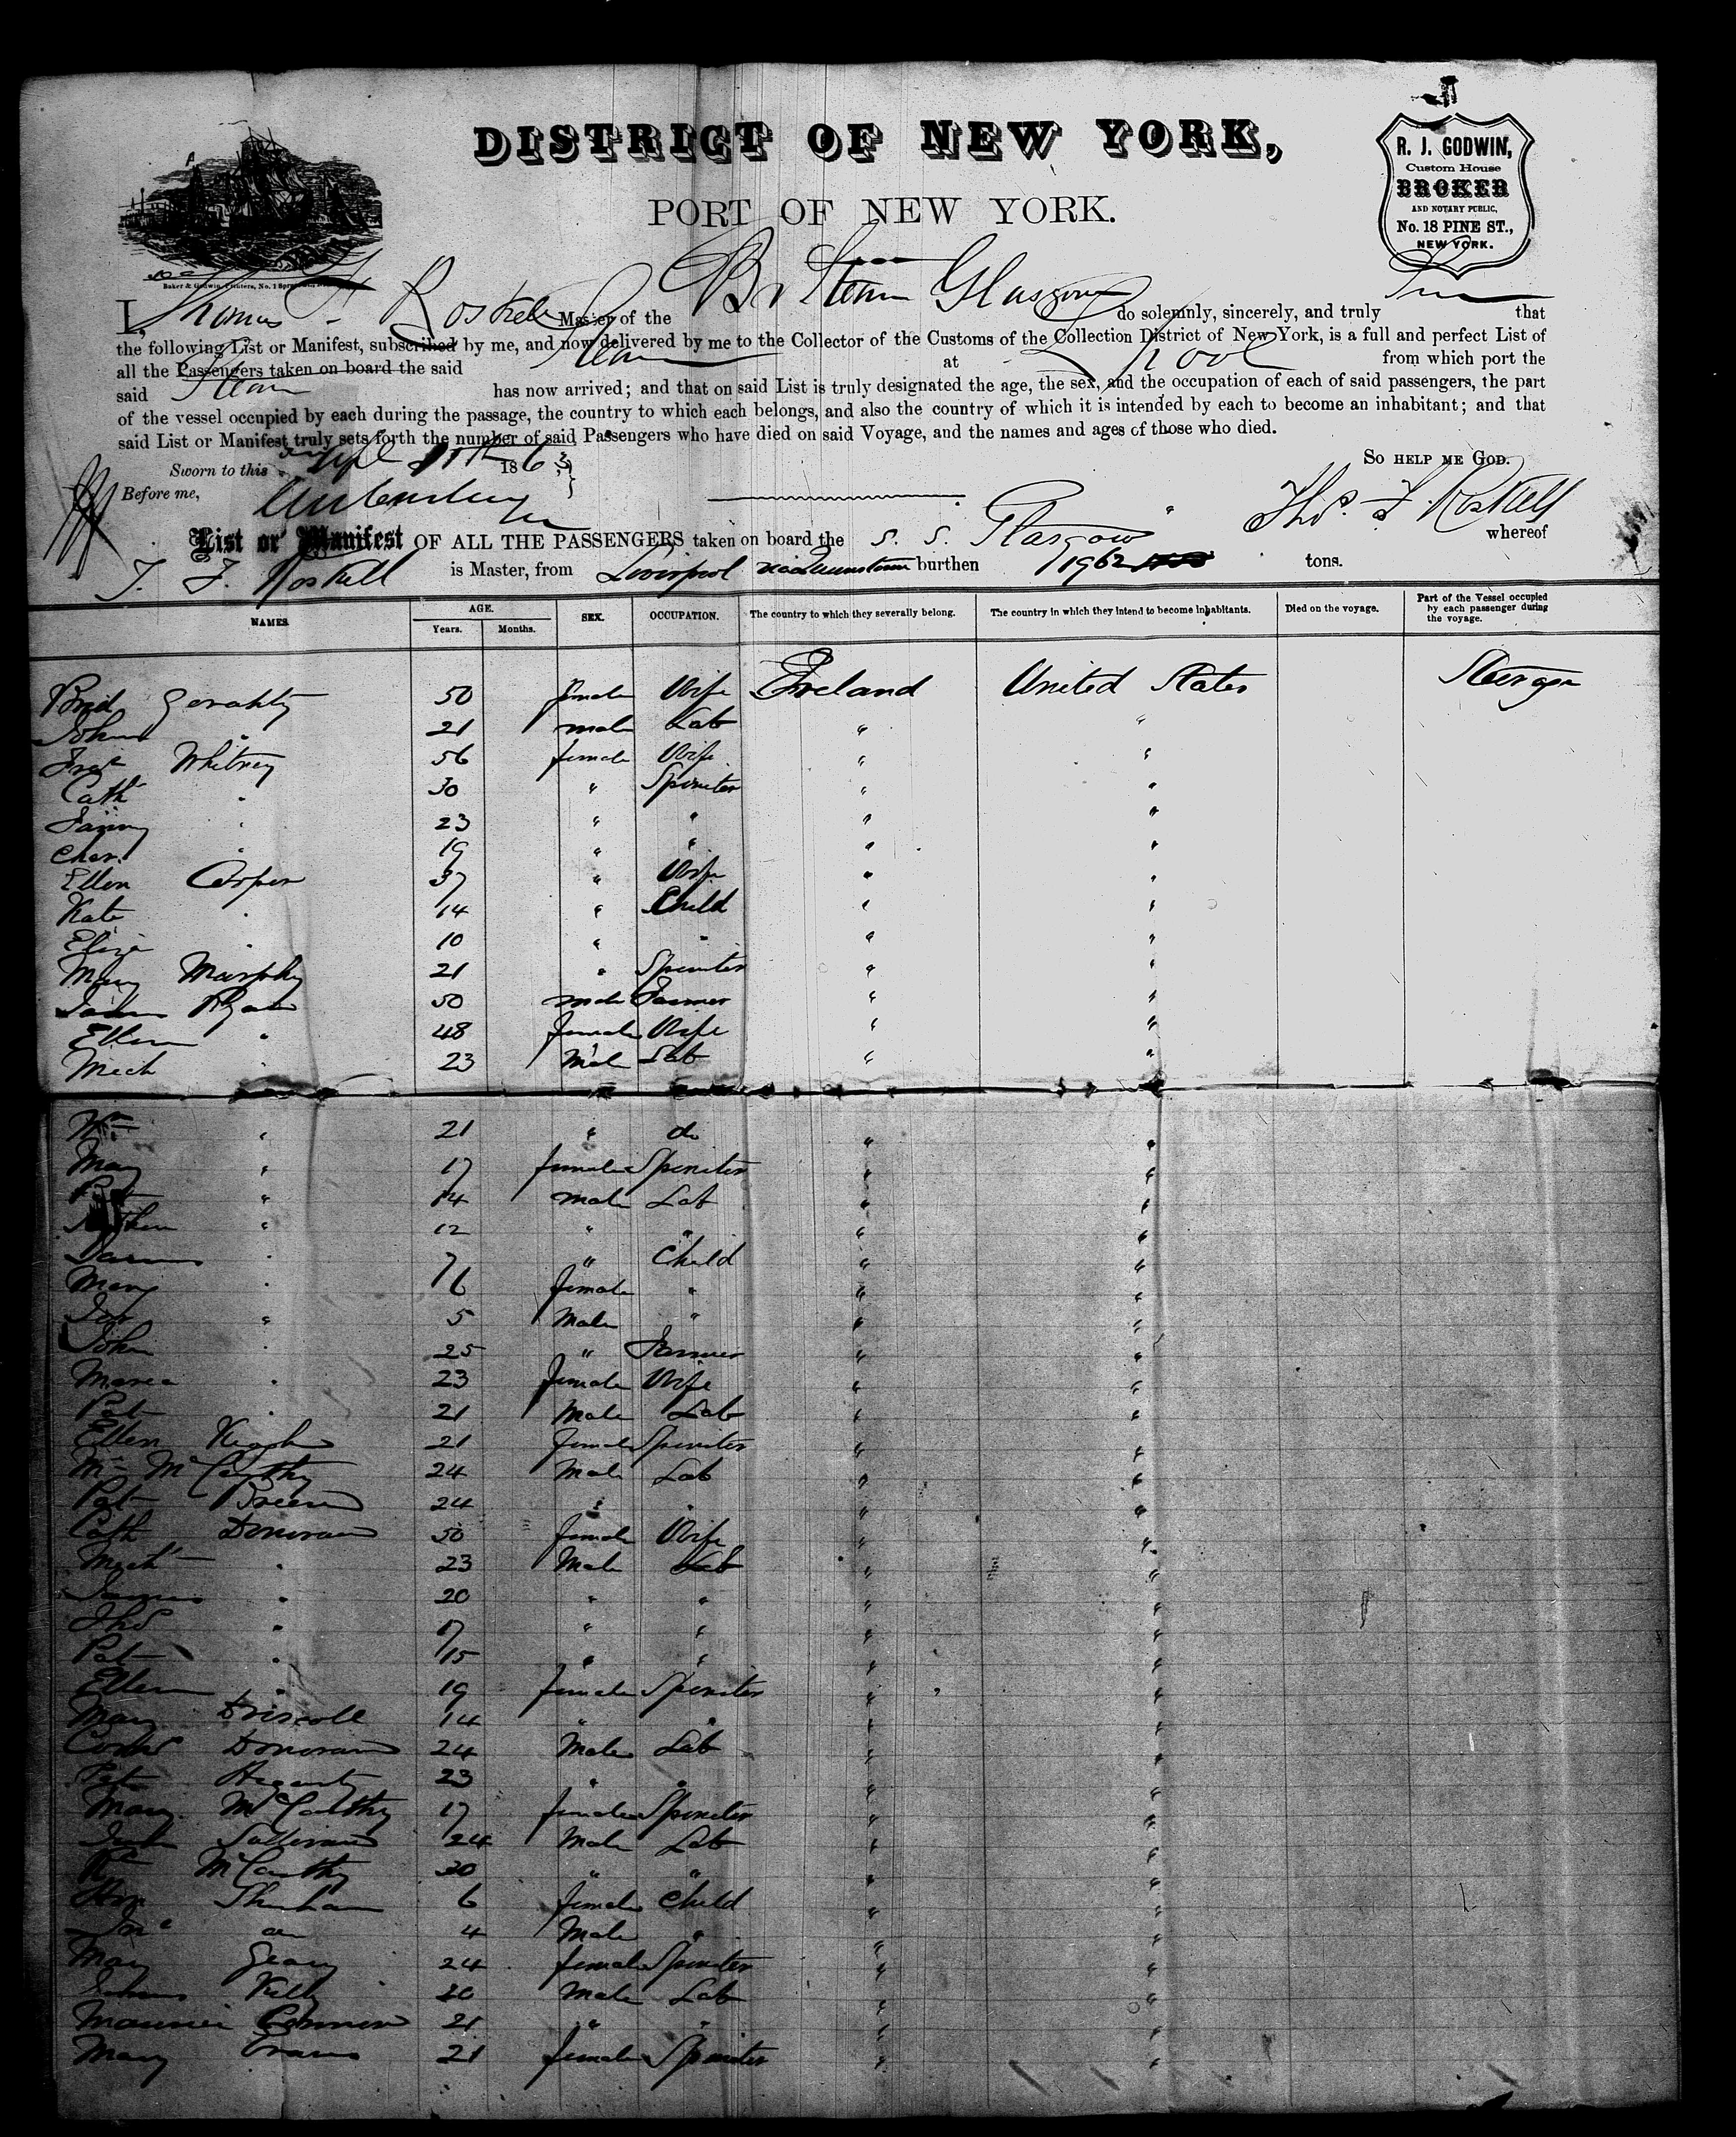 DISTRICT OF NEW YORK,
PORT OF NEW YORK.
R. J. GODWIN,
Custom House
BROKER
AND NOTARY PUBLIC,
No. 18 PINE ST.,
NEW YORK.
I, Thomas F. Roskell Master of the Br Steam Glasgow do solemnly, sincerely, and truly that
the following List or Manifest, subscribed by me, and now delivered by me to the Collector of the Customs of the Collection District of New York, is a full and perfect List of
all the Passengers taken on board the said Steam at L'pool from which port the
said Steam has now arrived; and that on said List is truly designated the age, the sex, and the occupation of each of said passengers, the part
of the vessel occupied by each during the passage, the country to which each belongs, and also the country of which it is intended by each to become an inhabitant; and that
said List or Manifest truly sets forth the number of said Passengers who have died on said Voyage, and the names and ages of those who died.
Sworn to this Sept 186 SO HELP ME GOD.
Before me, Thos. F. Roskell
List or Manifest OF ALL THE PASSENGERS taken on board the S. S. Glasgow whereof
T. F. Roskell is Master, from Liverpool via Queenstown burthen 1962 tons.
NAMES. AGE. Years. Months. SEX. OCCUPATION. The country to which they severally belong. The country in which they intend to become inhabitants. Died on the voyage. Part of the Vessel occupied by each passenger during the voyage.
Brid Gerahty 50 female Wife Ireland United States Steerage
John " 21 male Lab " "
Whitney 56 female Wife " "
Cath " 30 " Spinster " "
Fanny " 23 " " " "
Char. " 19 " " " "
Ellen 37 " Wife " "
Kate " 14 " Child " "
Eliza " 10 " " " "
Mary Murphy 21 " Spinster " "
James Ryan 50 male Farmer " "
Ellen " 48 female Wife " "
Mich " 23 Male Lab " "
Wm " 21 " do " "
Mary " 17 female Spinster " "
Pat " 14 male Lab " "
" 12 " " " "
" 7 " Child " "
Mary " 6 female " " "
" 5 Male " " "
John " 25 " Farmer " "
Maria " 23 female Wife " "
Pat " 21 Male Lab " "
Ellen Keogh 21 female Spinster " "
McCarthy 24 Male Lab " "
Pat Breen 24 " " " "
Cath Donovan 50 female Wife " "
Mich " 23 Male Lab " "
James " 20 " " " "
Thos " 17 " " " "
Pat " 15 " " " "
Ellen " 19 female Spinster " "
Mary Driscoll 14 " " " "
Corns Donovan 24 Male Lab " "
Pat Hegarty 23 " " " "
Mary McCarthy 17 female Spinster " "
Sullivan 24 Male Lab " "
McCarthy 30 " " " "
6 female Child " "
4 Male " " "
Mary Geary 24 female Spinster " "
Kelly 20 Male Lab " "
Maurice Connor 21 " " " "
Mary Evans 21 female Spinster " "